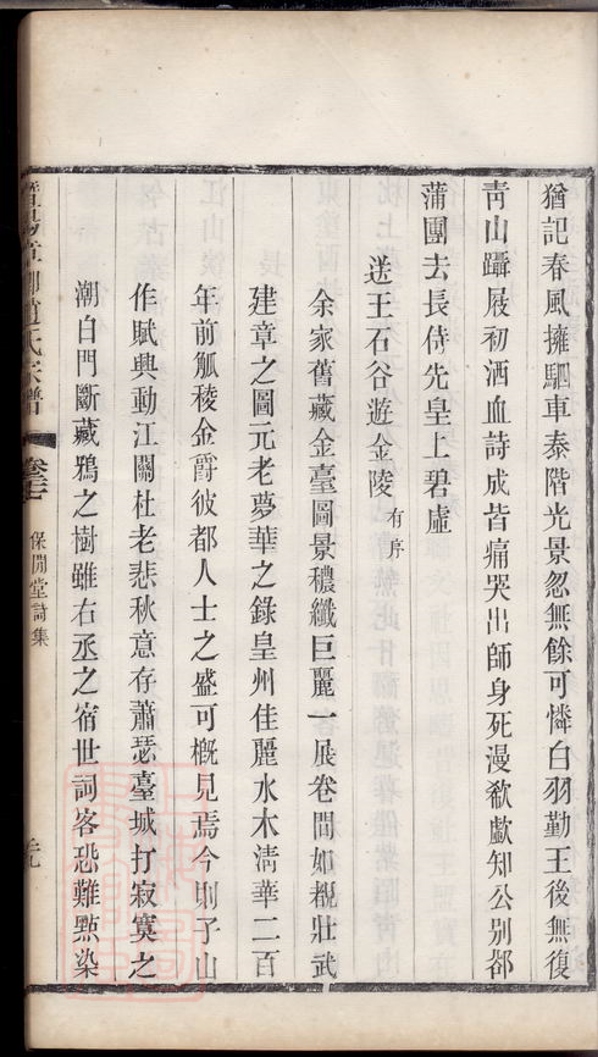 猶記春風擁駟車泰階光景忽無餘可憐白羽勤王後無復
靑山躡屐初洒血詩成皆痛哭出師身死漫欷歔知公別郤
蒲團去長侍先皇上碧虛
送王石谷遊金陵有序
余家舊藏金臺圖景穠纖巨麗一展卷間如覩壯武
建章之圖元老夢華之錄皇州佳麗水木淸華二百
年前觚稜金爵彼都人士之盛可槪見焉今則子山
作賦興動江關杜老悲秋意存蕭瑟臺城打寂寞之
潮白門斷藏鴉之樹雖右丞之宿世詞客恐難㸃染
趙氏宗譜
保閒堂詩集